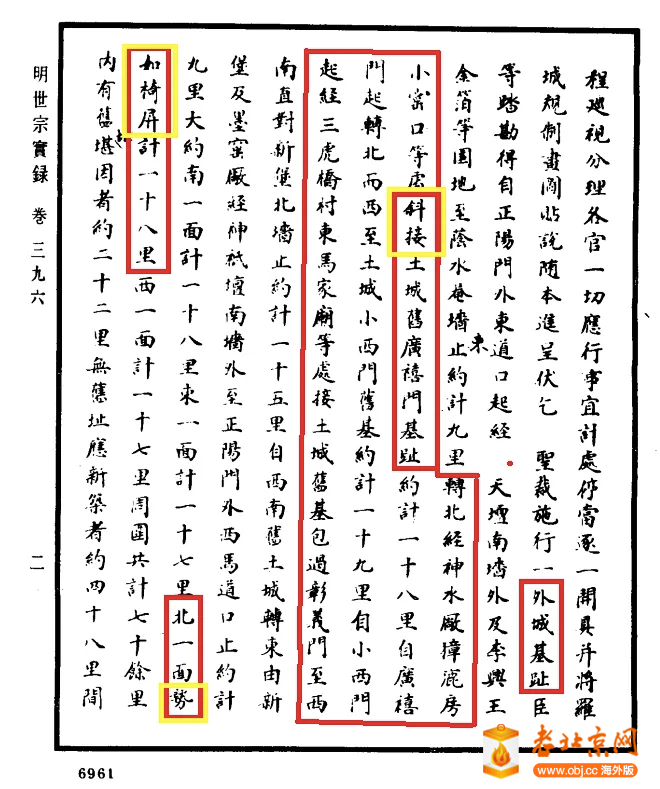 程巡視分理各官一切應行事宜計處停當逐一開具并將羅
城規制畫圖貼說随本進呈伏乞 聖裁施行一外城基趾臣
等踏勘得自正陽門外東道口起經 天壇南墻外及李興王
東
金箔等園地至蔭水菴墻止約計九里轉北經神水廠獐鹿房
小窰口等處斜接土城舊廣禧門基趾約計一十八里自廣禧
門起轉北而西至土城小西門舊基約計一十九里自小西門
起經三虎橋村東馬家廟等處接土城舊基包過彰義門至西
南直對新堡北墻止約計一十五里自西南舊土城轉東由新
堡及墨窰廠經神祇壇南墻外至正陽門外西馬道口止約計
九里大約南一面計一十八里東一面計一十七里北一面勢
如椅屏計一十八里西一面計一十七里周圍共計七十餘里
内有舊堪因者約二十二里無舊址應新築者約四十八里間
明世宗實録 卷三九六
二
6961
老北京网
www.obj.cc 海外版